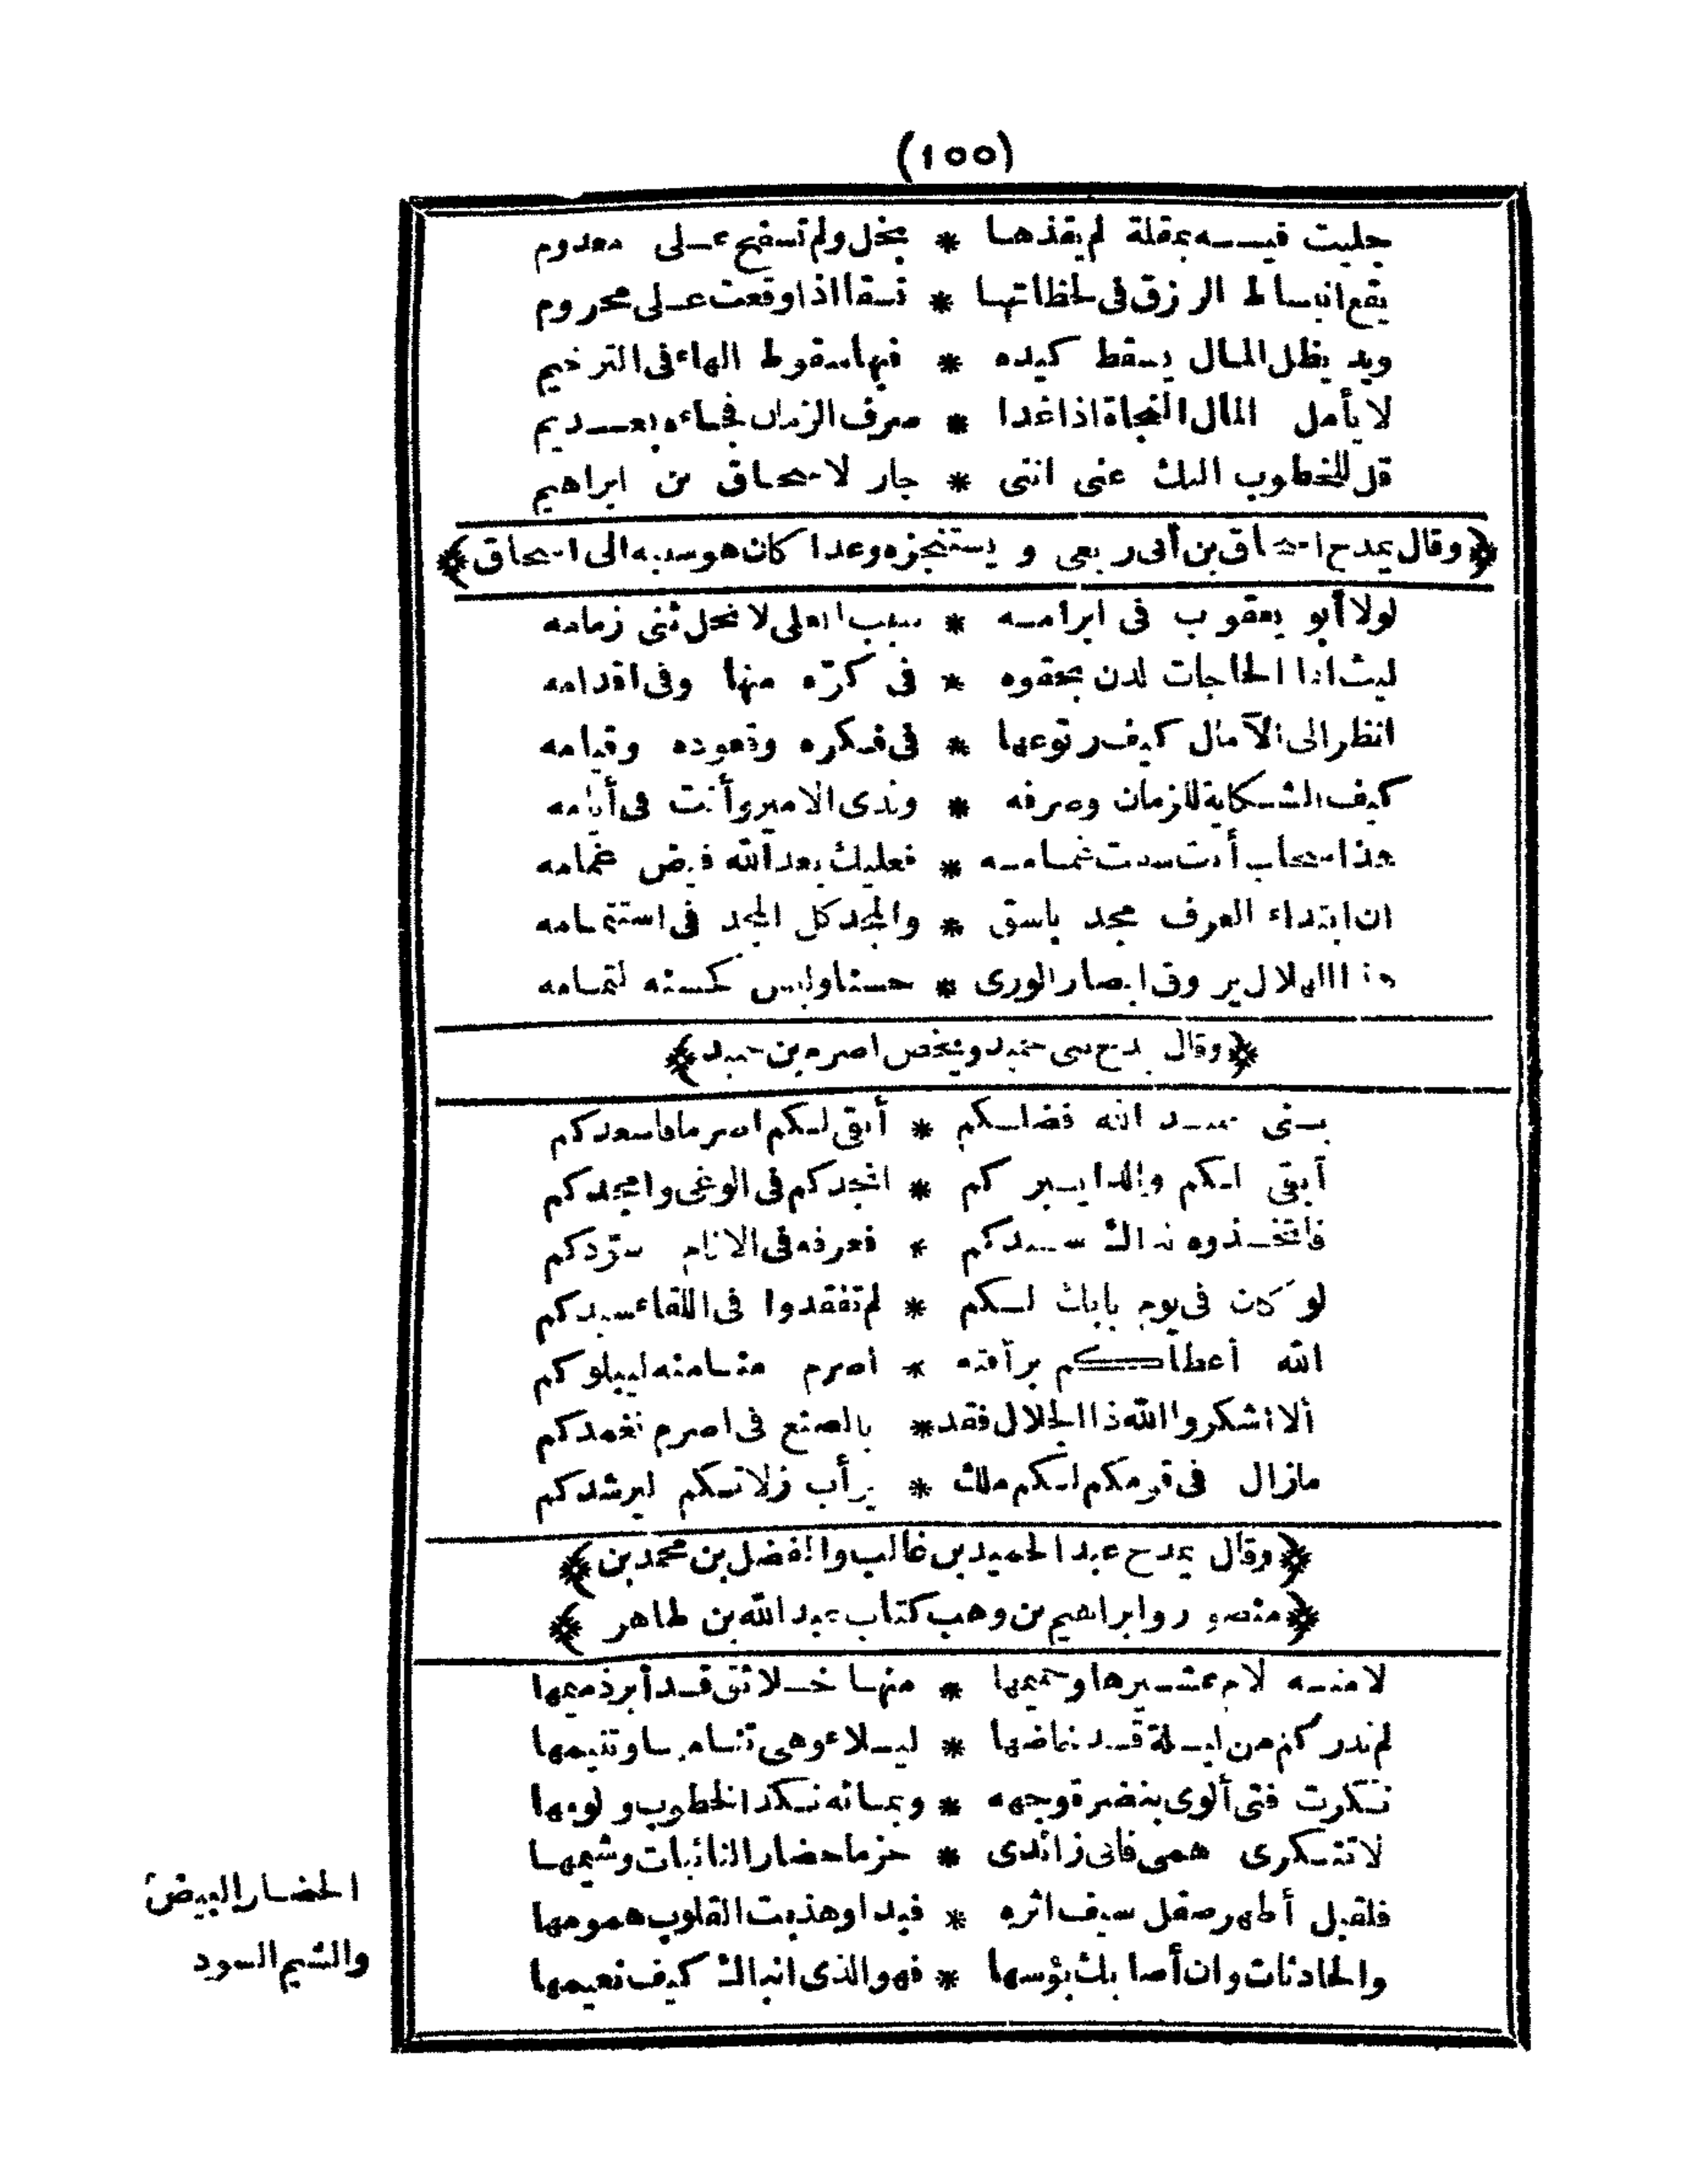 (١٥٥)
جليت فيه بمقلة لم يقذها * بخل ولم تسفح على معدوم
يقع انبساط الرزق فى لحظاتها * نسقا اذا وقعت على محروم
ويد يظل المال يسقط كيده * فيها سقوط الهاء فى الترخيم
لا يأمل المال النجاة اذا غدا * صرف الزمان فجاءه بعديم
قل للخطوب اليك عنى اننى * جار لاسحاق بن ابراهيم
﴿وقال يمدح اسحاق بن أبى ربعى و يستنجزه وعدا كان هو سببه الى اسحاق﴾
لولا أبو يعقوب فى ابرامه * سبب العلى لانحل ثنى زمامه
ليث اذا الحاجات لدن بحقوه * فى كرّه منها وفى اقدامه
انظر الى الآمال كيف رتوعها * فى فكره وقعوده وقيامه
كيف الشكاية للزمان وصرفه * وندى الامير وأنت فى أيامه
هذا سحاب أنت سقت غمامه * فعليك بعد الله فيض غمامه
ان ابتداء العرف مجد باسق * والمجد كل المجد فى استتمامه
هذا الهلال يروق ابصار الورى * حسنا وليس كحسنه لتمامه
﴿وقال يمدح بنى حميد ويخص اصرم بن حميد﴾
بنى حميد الله فضلكم * أبقى لكم اصرما فاسعدكم
أبقى لكم والدا يبركم * انجدكم فى الوغى وامجدكم
فاتخذوه لذاك سيدكم * فعرفه فى الانام سوّدكم
لو كان فى يوم بابك لكم * لم تفقدوا فى اللقاء سيدكم
الله أعطاكم برأفته * اصرم منامنه ليبلوكم
ألا اشكروا الله ذا الجلال فقد * بالصنع فى اصرم تغمدكم
مازال فى قومكم لكم ملك * يرأب زلاتكم ليرشدكم
﴿وقال يمدح عبد الحميد بن غالب والفضل بن محمد بن﴾
﴿منصور وابراهيم بن وهب كتاب عبد الله بن طاهر﴾
لامته لام عشيرها وحميمها * منها خلائق قد أبر ذميمها
لم تدر كم من ليلة قد خاضها * ليلاء وهى تنامها وتنيمها
نكرت فتى ألوى بنضرة وجهه * وبمائه نكد الخطوب ولومها
لا تنكرى همى فانى زائدى * حزما حضار النائبات وشيمها
فلقبل أظهر صقل سيف اثره * فبدا وهذبت القلوب همومها
والحادثات وان أصابك بؤسها * فهو الذى انباك كيف نعيمها
الحضار البيض
والشيم السود